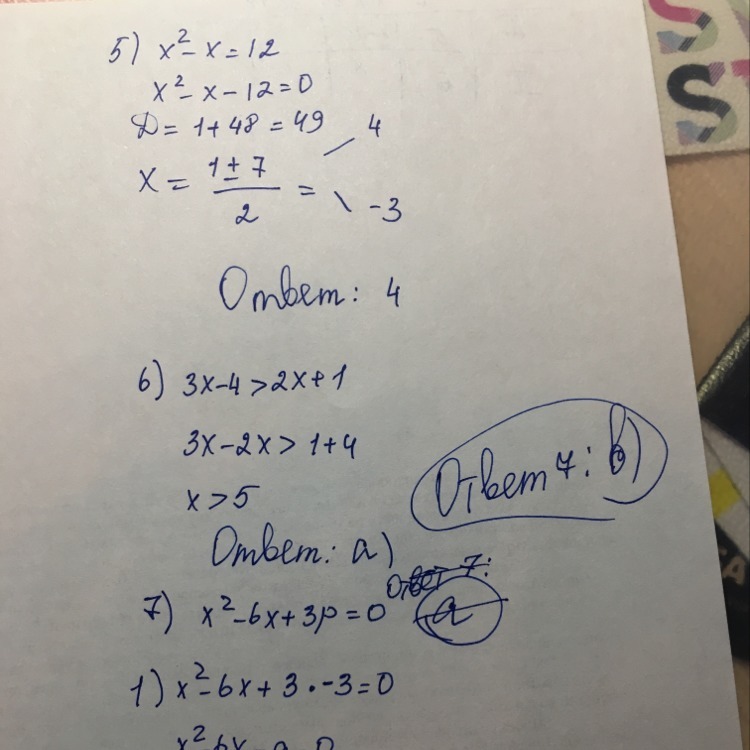 5) x² - x = 12
x² - x - 12 = 0
D = 1 + 48 = 49
x = (1 ± 7)/2 = 4
-3
Ответ: 4
6) 3x - 4 > 2x + 1
3x - 2x > 1 + 4
x > 5
Ответ: а)
Ответ 7: b)
Ответ 7:
7) x² - 6x + 3p = 0 a
1) x² - 6x + 3 · -3 = 0
ST